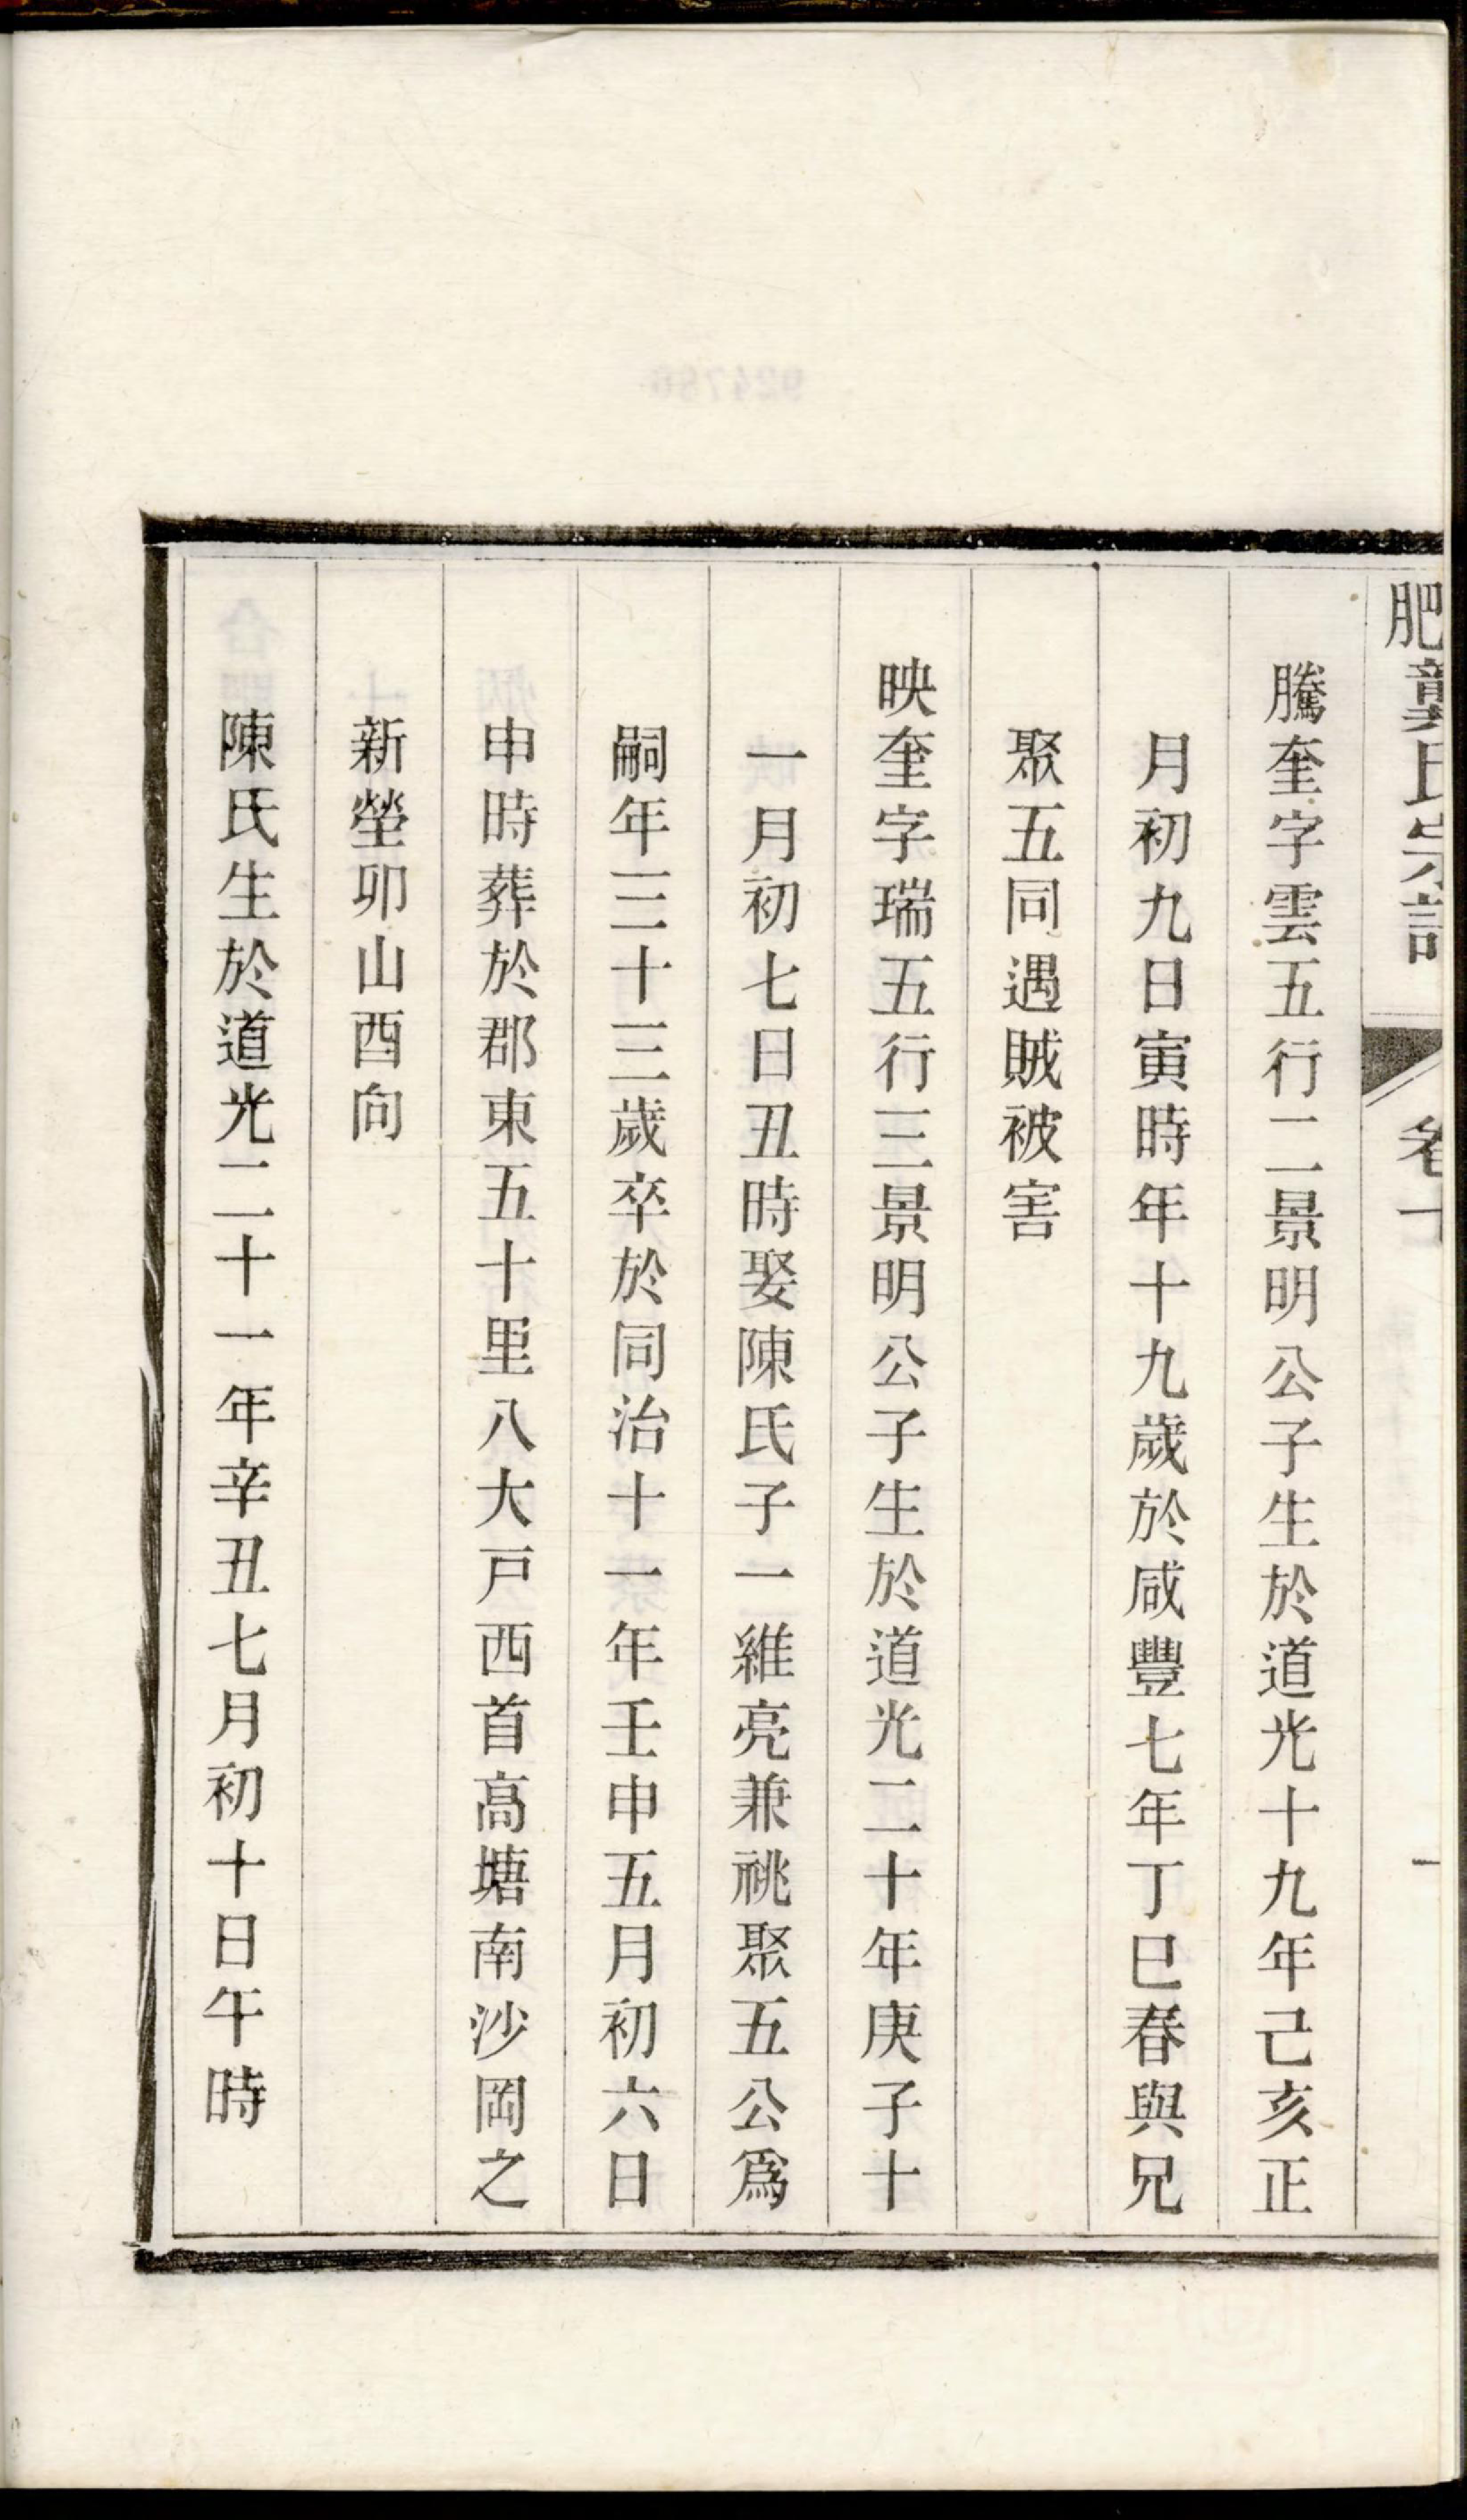 肥龔氏宗譜
卷十
一
騰奎字雲五行二景明公子生於道光十九年己亥正
月初九日寅時年十九歲於咸豐七年丁巳春與兄
聚五同遇賊被害
映奎字瑞五行三景明公子生於道光二十年庚子十
一月初七日丑時娶陳氏子一維亮兼祧聚五公爲
嗣年三十三歲卒於同治十一年壬申五月初六日
申時葬於郡東五十里八大戸西首高塘南沙岡之
新塋卯山酉向
陳氏生於道光二十一年辛丑七月初十日午時